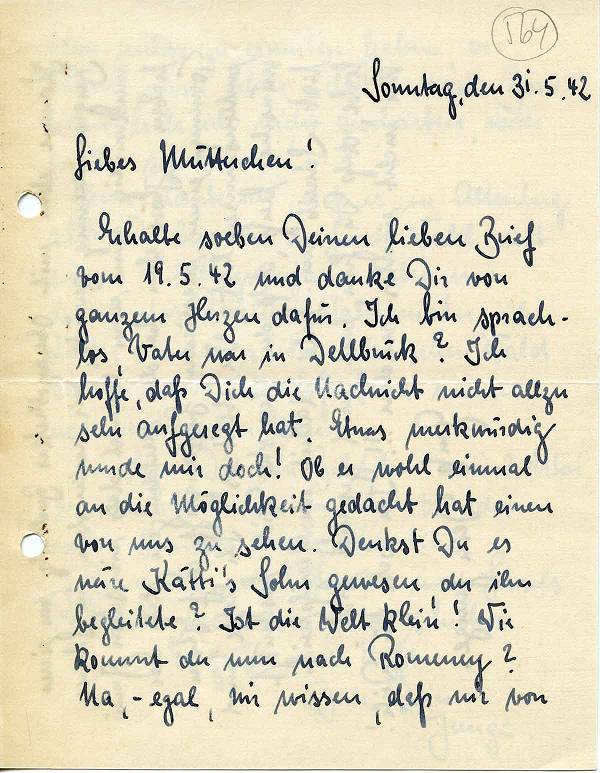 564
Sonntag, den 31.5.42
Liebes Mütterchen!
Erhalte soeben Deinen lieben Brief
vom 19.5.42 und danke Dir von
ganzem Herzen dafür. Ich bin sprach-
los, Vater war in Dellbrück? Ich
hoffe, daß Dich die Nachricht nicht allzu
sehr aufgeregt hat. Etwas merkwürdig
wurde mir doch! Ob er wohl einmal
an die Möglichkeit gedacht hat einen
von uns zu sehen. Denkst Du es
wäre Kätti's Sohn gewesen der ihn
begleitete? Ist die Welt klein! Wie
kommt der nun nach Romeney?
Na,- egal, wir wissen, daß wir von